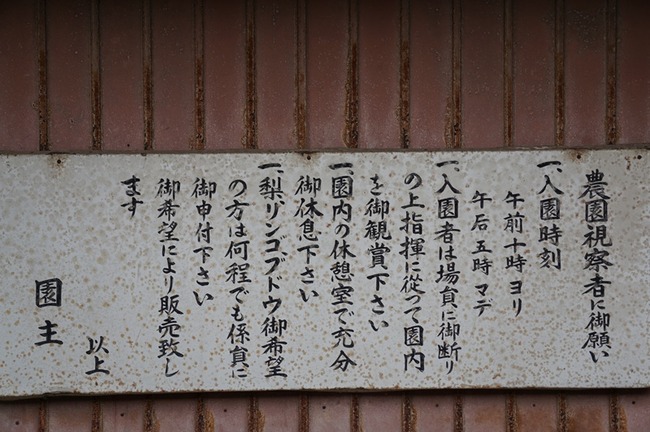 農園視察者に御願い
一、入園時刻
午前十時ヨリ
午后五時マデ
一、入園者は場員に御断り
の上指揮に従つて園内
を御観賞下さい
一、園内の休憩室で充分
御休息下さい
一、梨リンゴブドウ御希望
の方は何程でも係員に
御申付下さい
御希望により販売致し
ます
以上
園主